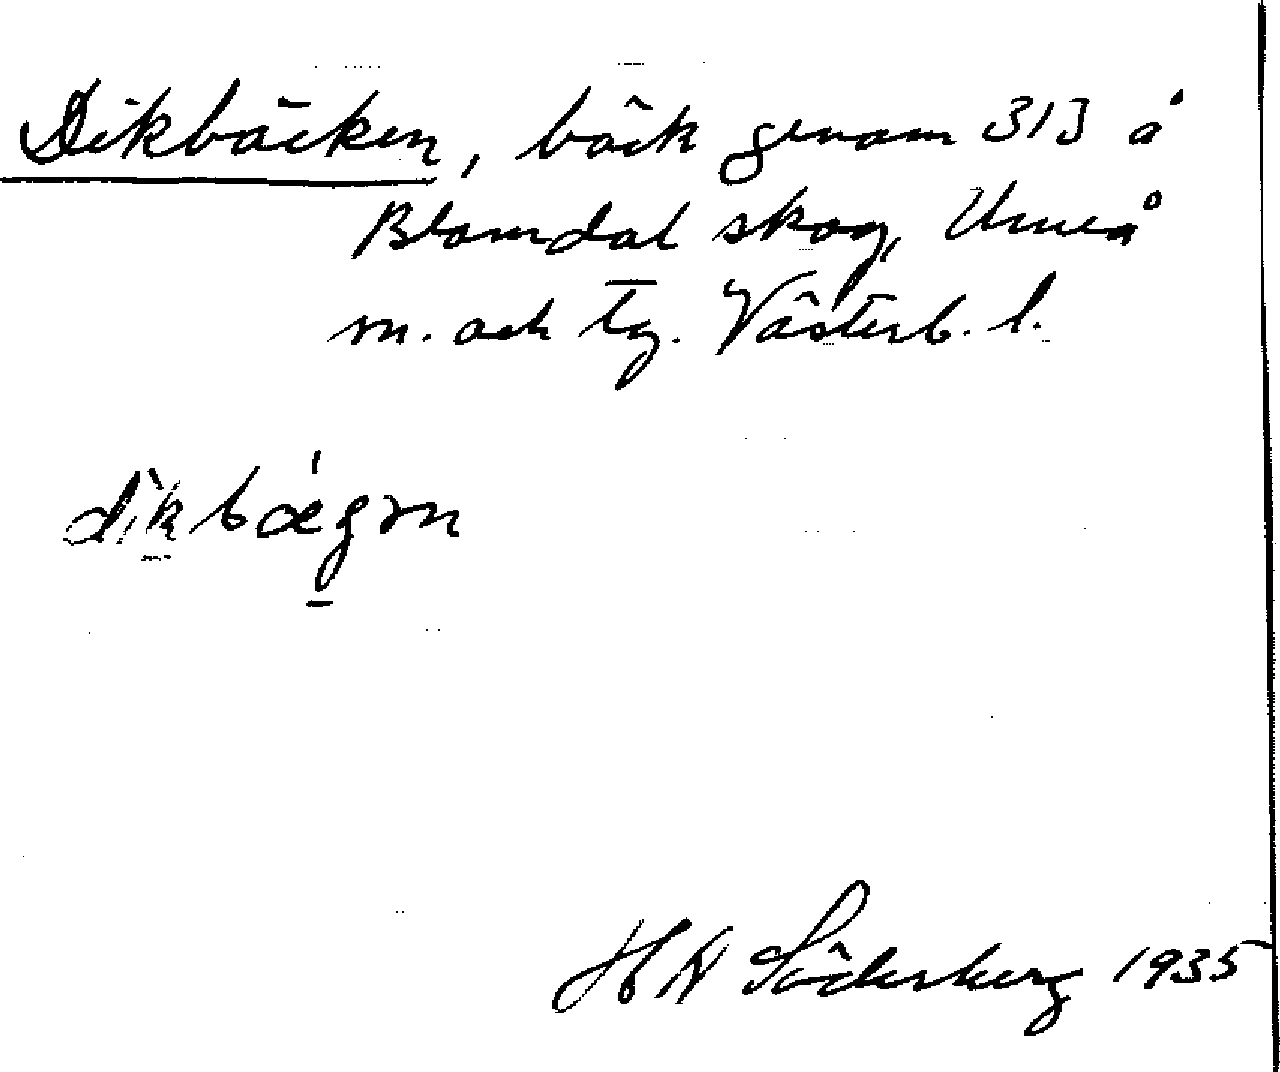 Dikbäcken, bäck genom 313 å
Blomdal skog, Umeå
m. och tg. Västerb. l.
dikbægən
H N Söderberg 1935